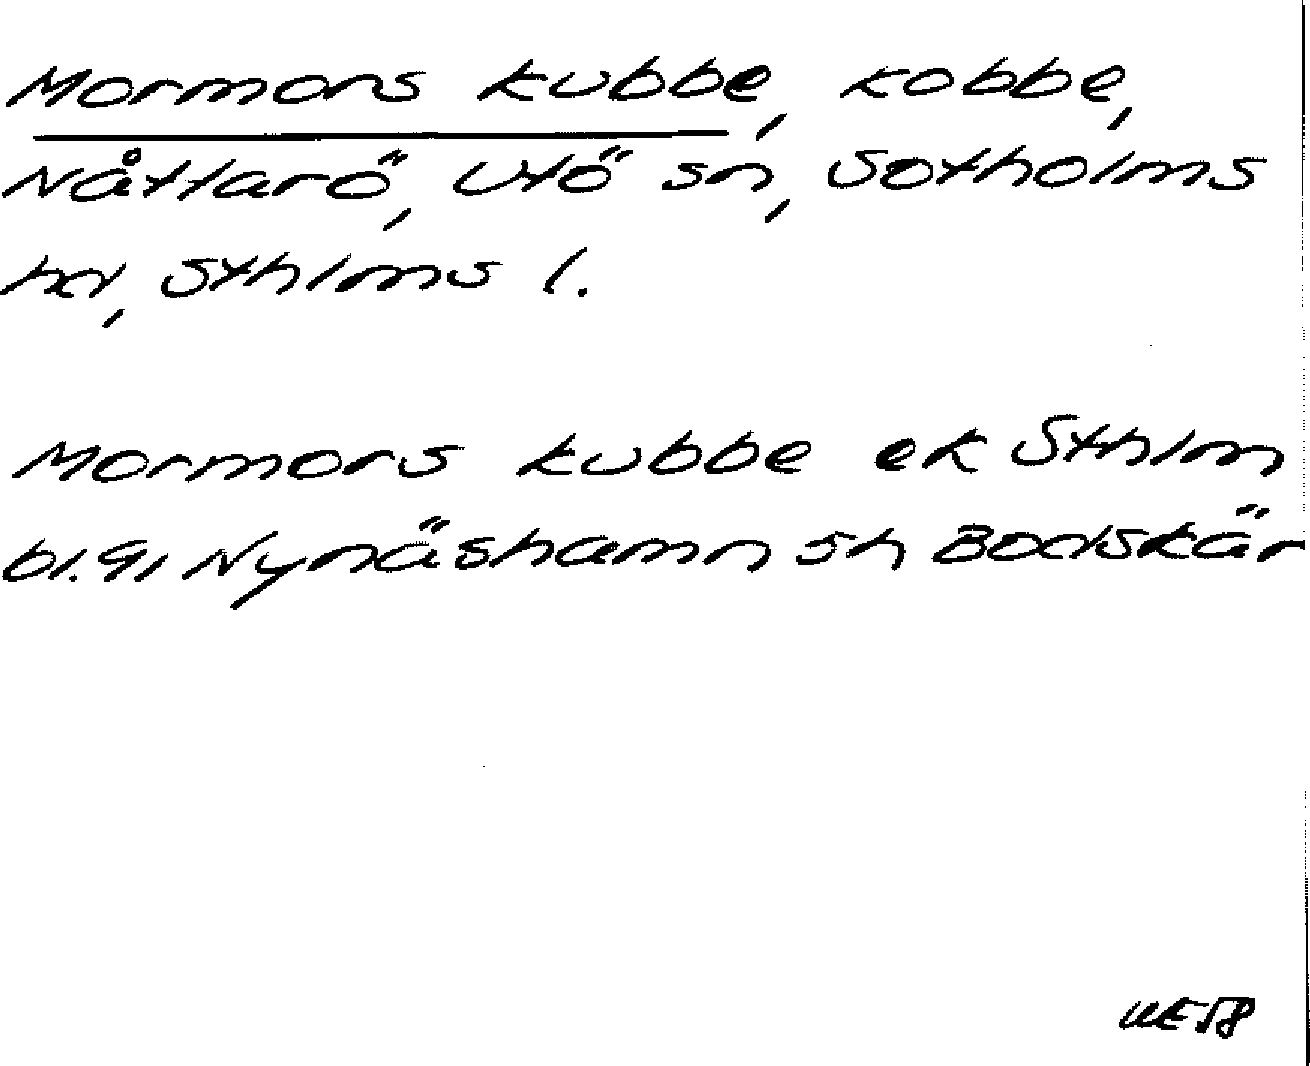 Mormors kubbe, kobbe,
Nåttarö, Utö sn, Sotholms
hd, Sthlms l.
Mormors kubbe ek Sthlm
bl. 91 Nynäshamn sh Bodskär